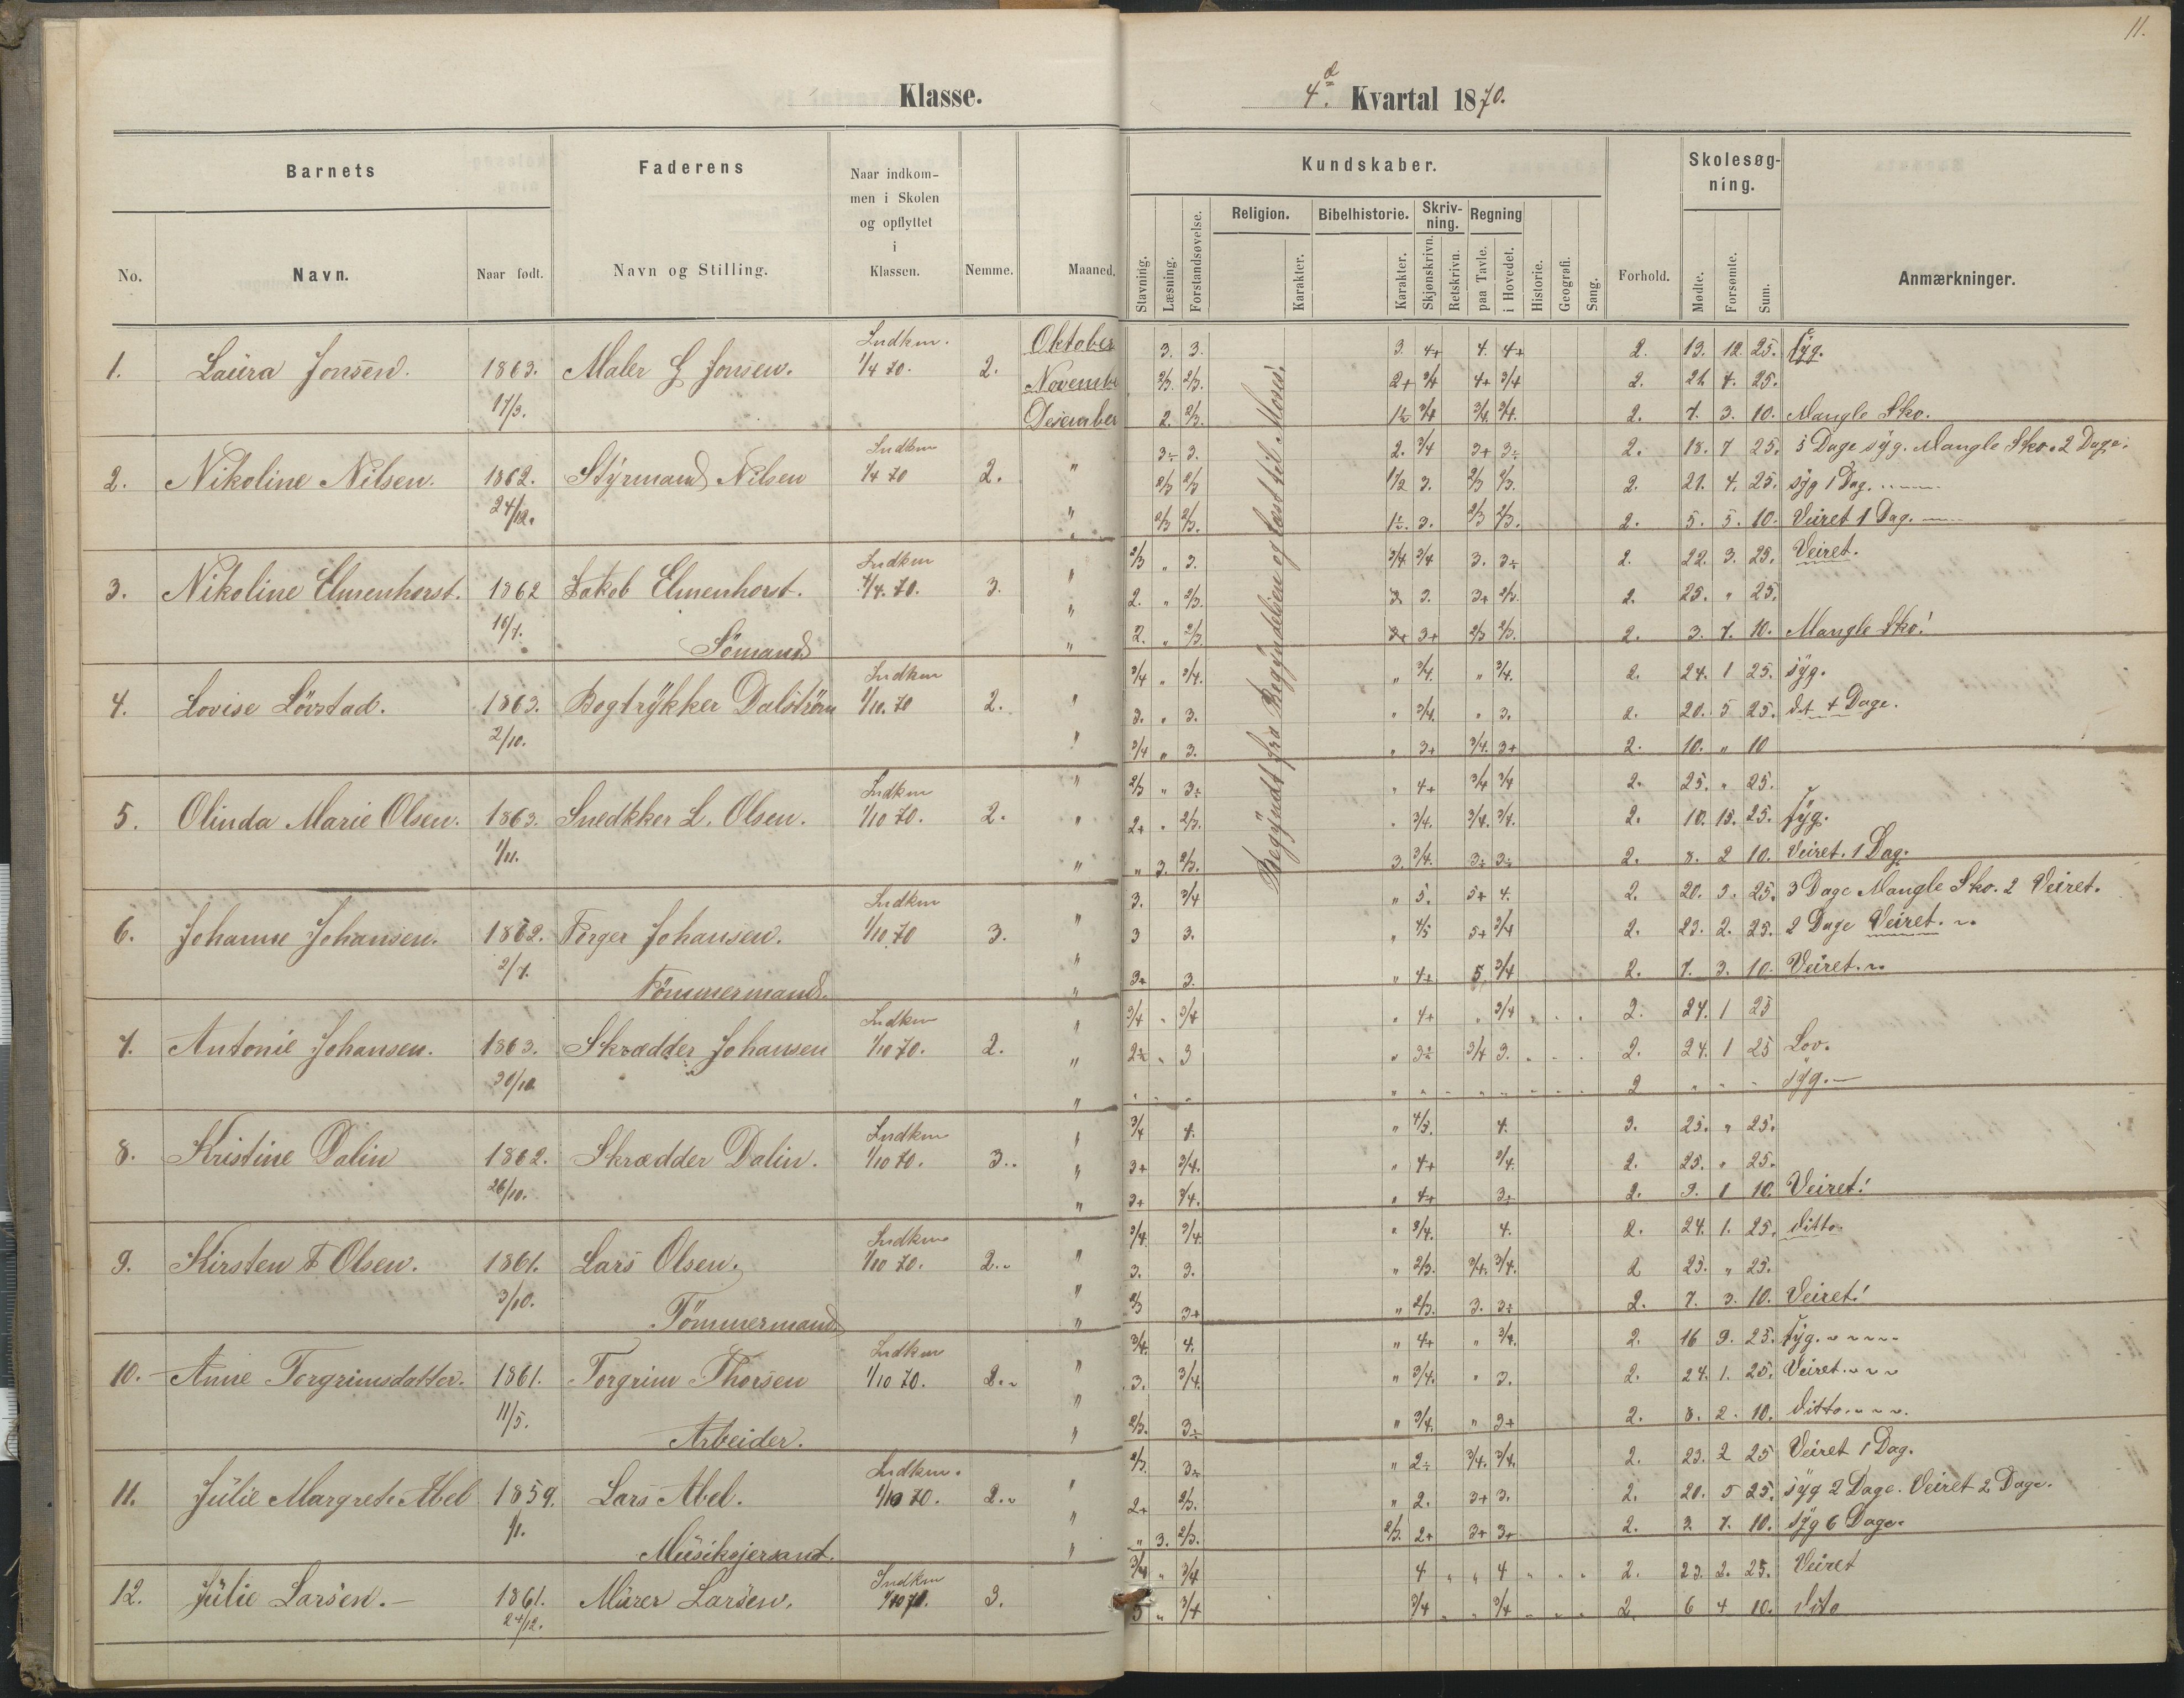 11.
Klasse.
4de Kvartal 1870.
Barnets
Faderens
Naar indkommen i Skolen og opflyttet i Klassen.
Nemme.
Maaned.
Kundskaber.
Forhold.
Skolesøgning.
Anmærkninger.
No.
Navn.
Naar født.
Navn og Stilling.
Stavning.
Læsning.
Forstandsøvelse.
Religion.
Karakter.
Bibelhistorie.
Karakter.
Skrivning.
Skjønskrivn.
Retskrivn.
Regning
paa Tavle.
i Hovedet.
Historie.
Geografi.
Sang.
Mødte.
Forsømte.
Sum.
Begyndt fra Begyndelsen og læst til Moses.
1. Laura Jonsen. 1863. 17/3. Maler G Jonsen. Indkm. 1/4 70. 2.
Oktober 3. 3. 3. 4+ 4. 4+ 2. 13. 12. 25. syg.
November 2/3. 2/3. 2+ 3/4 4+ 3/4 2. 21. 4. 25.
Desember 2. 2/3. 1½ 3/4 3/4. 3/4. 2. 7. 3. 10. Mangle Sko.
2. Nikoline Nilsen. 1862. 24/12. Styrmand Nilsen Indkm 1/4 70 2.
" 3÷ 3. 2. 3/4 3+ 3÷ 2. 18. 7 25. 5 Dage syg. Mangle Sko. 2 Dage.
" 2/3 2/3 1½ 3. 2/3 2/3. 2. 21. 4. 25. syg 1 Dag.
" 2/3 2/3. 1½. 3. 2/3 2/3. 2. 5. 5. 10. Veiret 1 Dag.
3. Nikoline Elmenhorst. 1862 Jakob Elmenhorst. Sömand Indkm 70. 3.
" 2/3 " 3. 3/4 3/4 3. 3÷ 2. 22. 3. 25. Veiret.
" 2. " 2/3. 3. 3. 3+ 2/3. 2. 25. " 25.
" 2. " 2/3. 3+ 3+ 2/3 2/3. 2. 3. 7. 10. Mangle Sko!
4. Lovise Lövstad. 1863. 2/10. Bogtrykker Dalström Indkm 1/10. 70 2.
" 3/4 " 3/4. " 3/4. " 3/4. 2. 24. 1 25. syg.
" 3. " 3. " 3/4. " 3. 2. 20. 5 25. dt 4 Dage.
" 3/4 " 3. " 3+ 3/4. 3+ 2. 10. " 10
5. Olinda Marie Olsen. 1863. 1/11. Snedkker L. Olsen. Indkm 1/10 70. 2.
" 2/3 " 3÷ " 4+ 3/4 3/4 2. 25. " 25.
" 2+ " 2/3. " 3/4. 3/4. 3/4. 2. 10. 15. 25. syg.
" " 3. 2/3. 3. 3/4. 3÷ 3÷ 2. 8. 2 10. Veiret. 1 Dag.
6. Johanne Johansen. 1862. 2/7. Johansen. Tömmermand. Indkm 1/10 70 3.
" 3. 3/4 " 5. 5+ 4. 2. 20. 5. 25. 3 Dage Mangle Sko. 2 Veiret.
" 3 3. " 4/5 5+ 3/4 2. 23. 2. 25. 2 Dage Veiret.
" 3+ 3. " 4+ 5, 3/4 2. 7. 3. 10. Veiret.
7. Antonie Johansen. 1863. 30/10. Skrædder Johansen Indkm 1/10 70. 2.
" 3/4 " 3/4 " 4+ " 3/4 " " " 2. 24. 1 25
" 2÷ " 3 " 3÷ 3/4 3. " " " 2. 24. 1 25 Lov.
" " " " " " " " " " " " 2 " " " syg.
8. Kristine Dalin 1862. 26/10. Skrædder Dalin. Indkm 1/10 70. 3.
" 3/4 4. " 4/5. 4. 3. 25. " 25.
" 3+ 3/4. " 4+ 3/4. 2. 25. " 25.
" 3+ 3/4. " 4+ 3÷ 2. 9. 1 10. Veiret!
9. Kirsten Olsen. 1861. 3/10. Lars Olsen. Tömmermand Indkm 1/10 70. 2.
" 3/4. 3/4. " 3/4. 4. 2. 24. 1. 25. ditto
" 3. 3. " 2/3. 3/4. 3/4. 2 25. " 25.
" 2/3 3+ " 2/3. 3. 3÷ 2. 7. 3. 10. Veiret!
10. Anne Torgrimsdatter. 1861. 11/5. Torgrim Thorsen Arbeider. Indkm 1/10 70. 2.
" 3/4. 4. " 4+ " 3/4. 2. 16 9. 25. syg.
" 3. 3/4. " 3/4. " 3. 2. 24. 1. 25. Veiret.
" 2/3. 3÷ " 3/4. " 3+ 2. 8. 2. 10. ditto.
11. Julie Margrete Abel 1859. Lars Abel. Indkm. 1/10 70. 2.
" 2/3. 3÷ " 2÷ 3/4. 3/4. 2. 23. 2 25 Veiret 1 Dag.
" 2+ 2/3. " 2. 3+ 3. 2. 20. 5 25. syg 2 Dage. Veiret 2 Dage.
" " 3. 2/3. 2/3. 2+ 3+ 3+ 2. 3 7. 10. syg 6 Dage.
12. Julie Larsen. 1861. 24/12. Murer Larsen. Indkm 3.
3/4 " 3/4 4 " " 4 " " " 2. 23. 2. 25. Veiret
5 " 3/4 3/4 " " 3/4 " " " 2. 6 4 10. dito